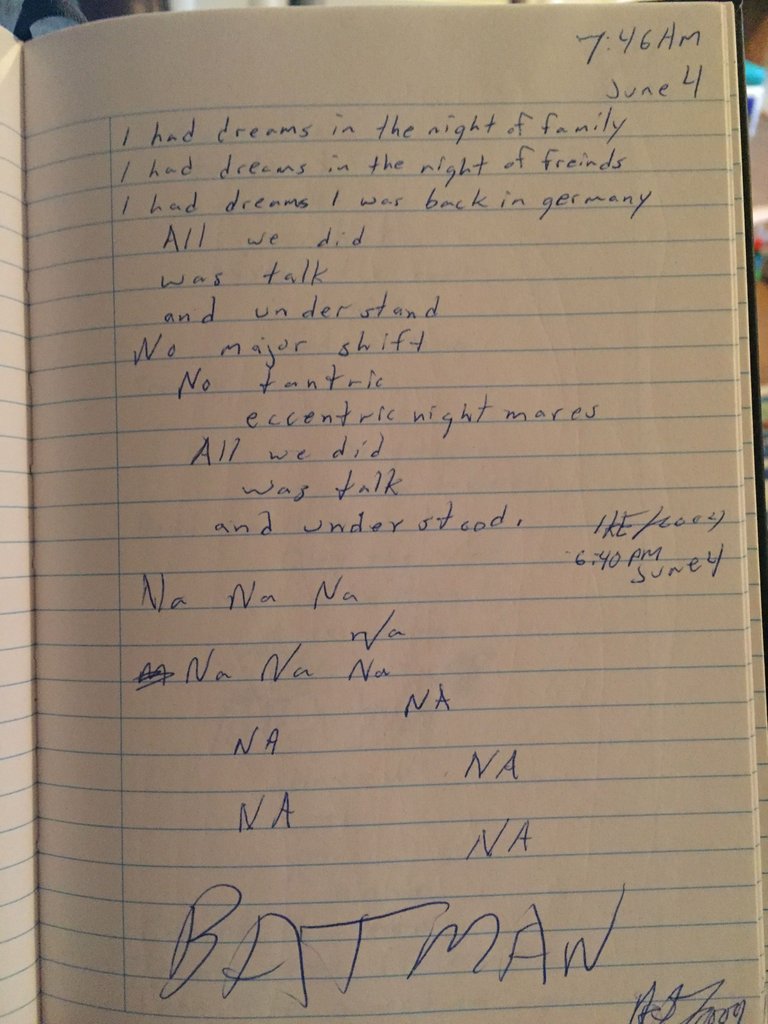 7:46AM
June 4
I had dreams in the night of family
I had dreams in the night of freinds
I had dreams I was back in germany
All we did
was talk
and understand
No major shift
No tantric
eccentric nightmares
All we did
was talk
and understood.
6:40 PM
June 4
Na Na Na
na
Na Na Na
NA
NA
NA
NA
NA
BATMAN